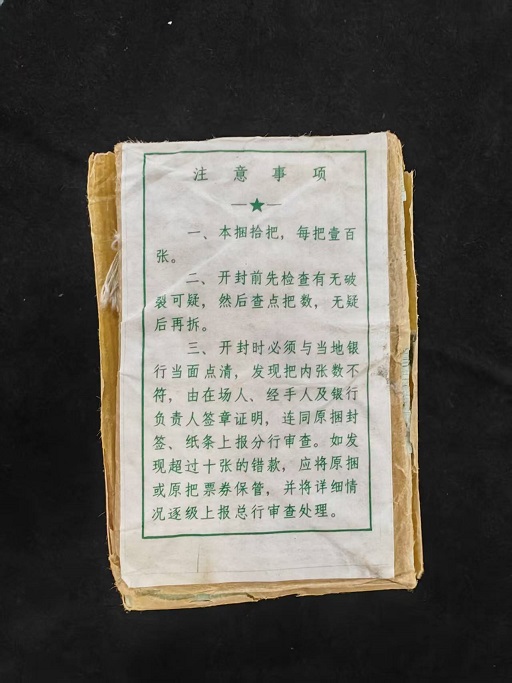 注意事项
一、本捆拾把，每把壹百
张。
二、开封前先检查有无破
裂可疑，然后查点把数，无疑
后再拆。
三、开封时必须与当地银
行当面点清，发现把内张数不
符，由在场人、经手人及银行
负责人签章证明，连同原捆封
签、纸条上报分行审查。如发
现超过十张的错款，应将原捆
或原把票券保管，并将详细情
况逐级上报总行审查处理。